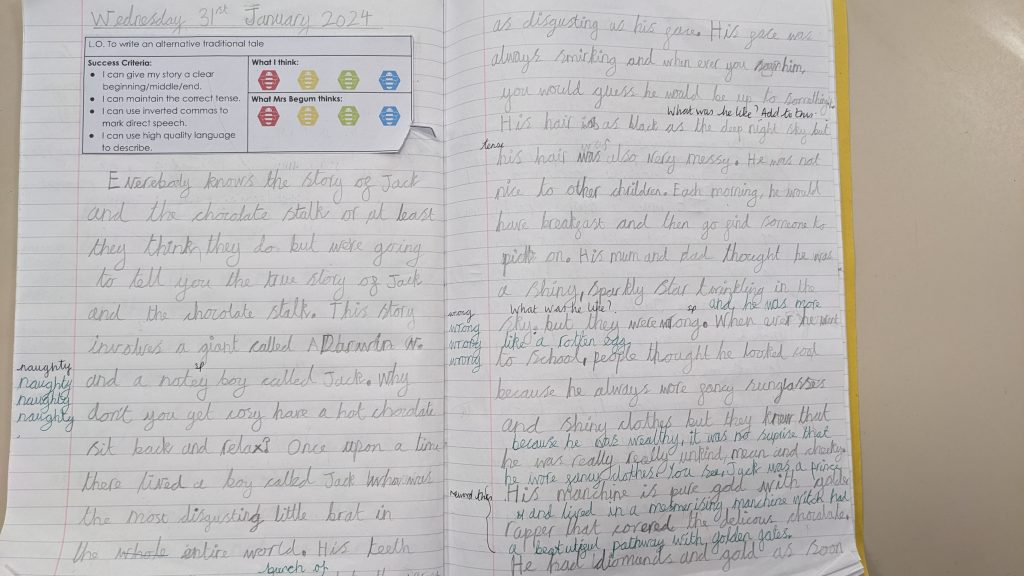 Wednesday 31st January 2024
L.O. To write an alternative traditional tale
Success Criteria:
I can give my story a clear
beginning/middle/end.
I can maintain the correct tense.
I can use inverted commas to
mark direct speech.
I can use high quality language
to describe.
What I think:
What Mrs Begum thinks:
Everebody knows the story of Jack
and the chocolate stalk or at least
they think, they do but we're going
to tell you the true story of Jack
and the chocolate stalk. This story
involves a giant called
sp
naughty
and a notey boy called Jack. Why
naughty
naughty
don't you get cosy have a hot chocolate
naughty
sit back and relax? Once upon a time
there lived a boy called Jack who was
the most disgusting little brat in
the whole entire world. His teeth
bunch of
as disgusting as his face. His face was
always smirking and when ever you him,
you would guess he would be up to something.
What was he like? Add to this.
His hair as black as the deep night sky but
tense
his hair was also very messy. He was not
nice to other children. Each morning, he would
have breakfast and then go find someone to
pick on. His mum and dad thought he was
a shiny, sparkly star twinkling in the
What was he like? sp and he was more
wrong
sky. but they were wrong. When ever he went
wrong
like a rotten egg.
wrong
to school, people thought he looked cool
wrong
because he always wore fancy sunglasses
and shiny clothes but they know that
because he was wealthy, it was no suprise that
he was really really unkind, mean and cheeky.
he wore fancy clothes. You see, Jack was a prince
His manchine is pure gold with golden
and lived in a mesmerising manchine witch had
rapper that covered the delicous chocolate.
a beatutiful pathway with golden gates.
He had diomands and gold as soon